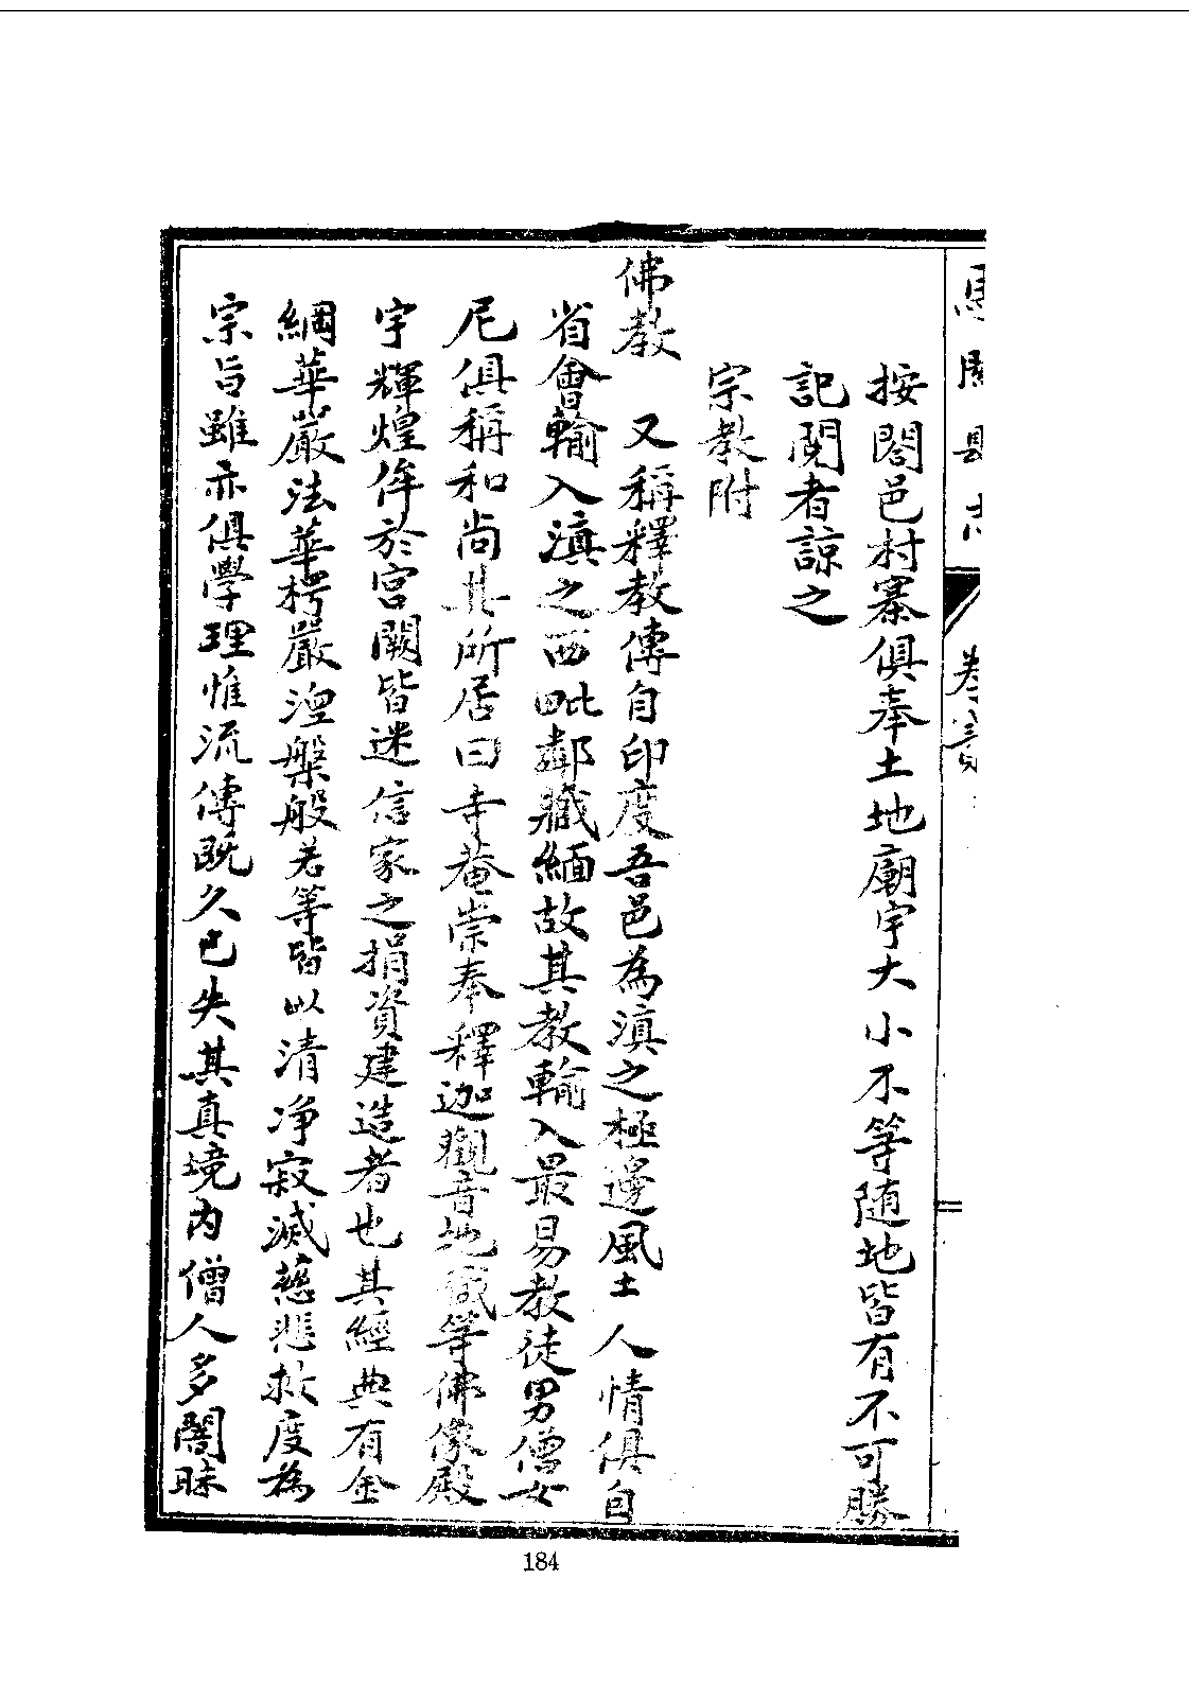 馬關縣志 卷首
按閤邑村寨俱奉土地廟宇大小不等隨地皆有不可勝
記閱者諒之
宗教附
佛教 又稱釋教傳自印度吾邑為滇之極邊風土人情俱自
省會輸入滇之西毗鄰藏緬故其教輸入最易教徒男僧女
尼俱稱和尚其所居曰寺菴崇奉釋迦觀音地藏等佛像殿
宇輝煌侔於宮闕皆迷信家之捐資建造者也其經典有金
綱華嚴法華楞嚴涅槃般若等皆以清淨寂滅慈悲救度為
宗旨雖亦俱學理惟流傳既久已失其真境內僧人多闇昧
184